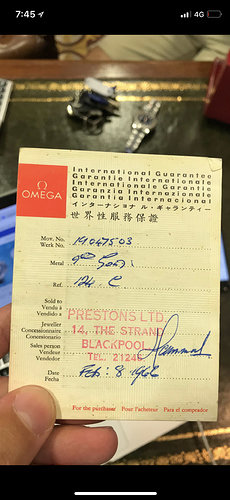 7:45
4G
International Guarantee
Garantie Internationale
Internationale Garantie
Garanzia Internazionale
Garantia Internacional
インターナショナル・ギャランティー
世界性服務保證
Ω
OMEGA
Mov. No.
Werk No.
19047503
Metal
9ct Gold
Ref.
Sold to
Vendu à
Vendido a
Jeweller
Concessionnaire
Concesionario
Sales person
Vendeur
Vendedor
PRESTONS LTD.
14, THE STRAND
BLACKPOOL
TEL. 21246
Date
Fecha
Feb: 8 1962
For the purchaser Pour l'acheteur Para el comprador